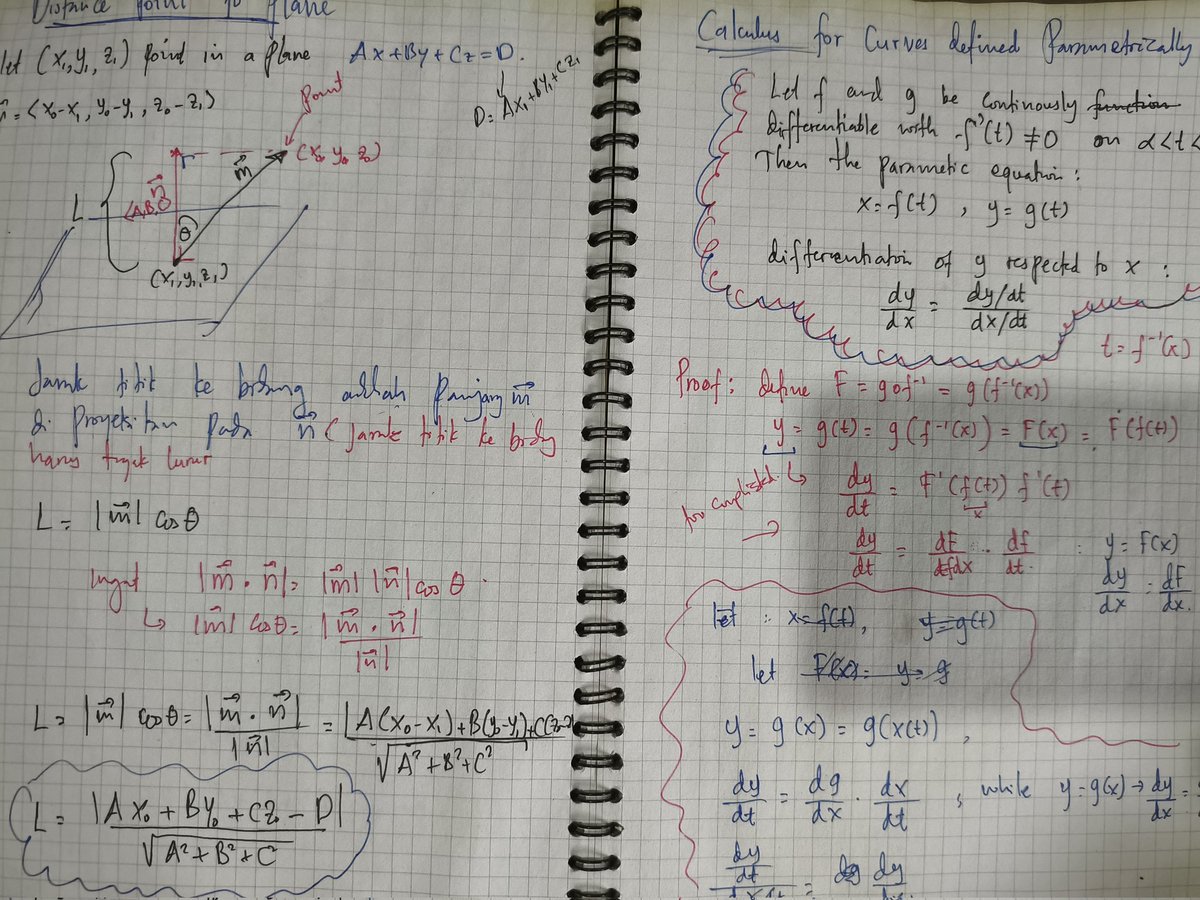 Distance point to plane
let (x₁,y₁,z₁) point in a plane Ax+By+Cz=D.
D=Ax₁+By₁+Cz₁
= <x₀-x₁, y₀-y₁, z₀-z₁>
point
(x₀ y₀ z₀)
m⃗
n⃗
<A,B,C>
L
θ
(x₁,y₁,z₁)
Jarak titik ke bidang adalah Panjang m⃗
di Proyeksikan pada n⃗ (Jarak titik ke bidang
harus tegak lurus
L = |m⃗| cos θ
ingat |m⃗ · n⃗| = |m⃗| |n⃗| cos θ.
↳ |m⃗| cos θ = |m⃗ · n⃗| / |n⃗|
L = |m⃗| cos θ = |m⃗ · n⃗| / |n⃗| = |A(x₀-x₁)+B(y₀-y₁)+C(z₀-z / √A²+B²+C²
L = |Ax₀ + By₀ + Cz₀ - D| / √A²+B²+C
Calculus for Curves defined Parametrically
Let f and g be continously function
differentiable with f'(t) ≠ 0 on α<t<
Then the parametic equation:
x=f(t), y=g(t)
differentiaton of y respected to x:
dy/dx = dy/dt / dx/dt
t=f⁻¹(x)
Proof: define F = g∘f⁻¹ = g(f⁻¹(x))
y = g(t) = g(f⁻¹(x)) = F(x) = F(f(t))
too complicated ↳ dy/dt = F'(f(t)) f'(t)
x
→ dy/dt = dF/dx · df/dt : y = F(x)
dy/dx = dF/dx.
let : x=f(t), y=g(t)
let F(x)= y= g
y = g(x) = g(x(t)),
dy/dt = dg/dx · dx/dt, while y=g(x) → dy/dx =
dy/dt / dx/dt = dy